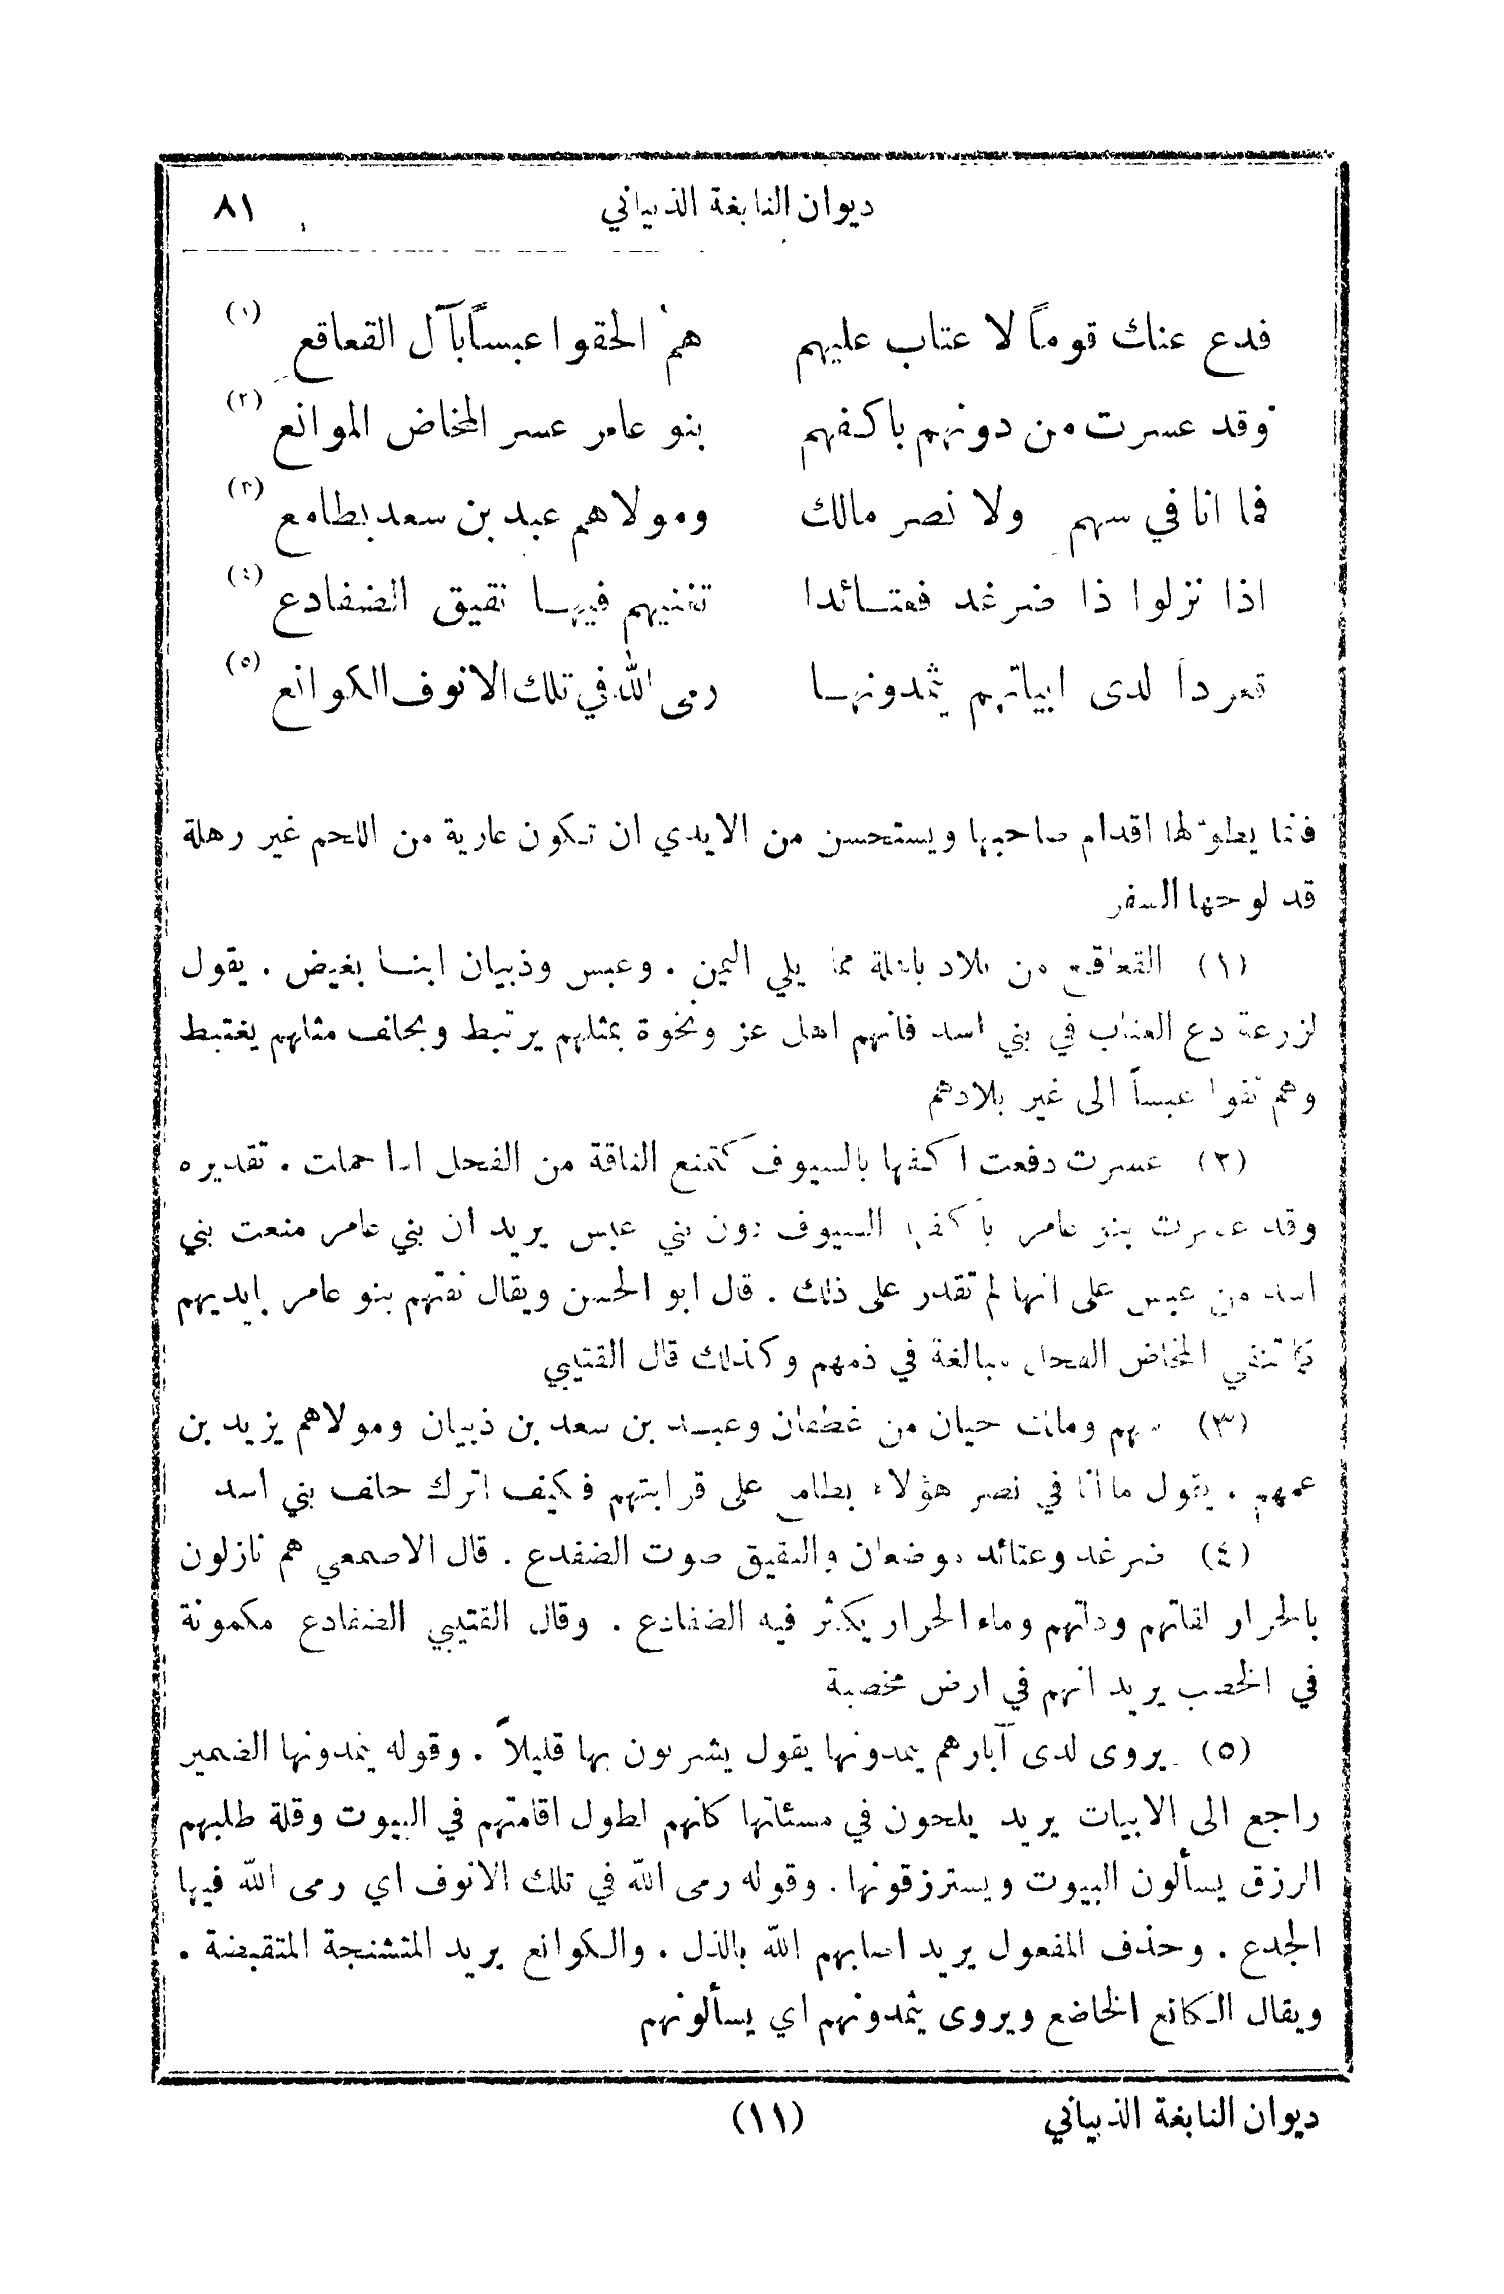 ديوان النابغة الذبياني ٨١
فدع عنك قوماً لا عتاب عليهم هم الحقوا عبساً بآل القعاقع (١)
وقد عسرت من دونهم باكفهم بنو عامر عسر المخاض الموانع (٢)
فما انا في سهم ولا نصر مالك ومولاهم عبد بن سعد بطامع (٣)
اذا نزلوا ذا ضرغد فعتائدا تغنيهم فيها نقيق الضفادع (٤)
قعوداً لدى ابياتهم يثمدونها رمى الله في تلك الانوف الكوانع (٥)
فانما يطول لها اقدام صاحبها ويستحسن من الايدي ان تكون عارية من اللحم غير رهلة
قد لوحها السفر
(١) القعاقع من بلاد باهلة مما يلي اليمن . وعبس وذبيان ابنا بغيض . يقول
لزرعة دع العتاب في بني اسد فانهم اهل عز ونخوة بمثلهم يرتبط وبحلف مثلهم يغتبط
وهم نفوا عبساً الى غير بلادهم
(٢) عسرت دفعت اكفها بالسيوف كتمنع الناقة من الفحل اذا حملت . تقديره
وقد عسرت بنو عامر باكفها السيوف دون بني عبس يريد ان بني عامر منعت بني
اسد من عبس على انها لم تقدر على ذلك . قال ابو الحسن ويقال نفتهم بنو عامر بايديهم
كما تنفي المخاض الفحل مبالغة في ذمهم وكذلك قال القتيبي
(٣) سهم ومالك حيان من غطفان وعبد بن سعد بن ذبيان ومولاهم يزيد بن
عمهم . يقول ما أنا في نصر هؤلاء بطامع على قرابتهم فكيف اترك حلف بني اسد
(٤) ضرغد وعتائد موضعان والنقيق صوت الضفدع . قال الاصمعي هم نازلون
بالحرار لقلتهم وذلتهم وماء الحرار يكثر فيه الضفادع . وقال القتيبي الضفادع مكمونة
في الخصب يريد انهم في ارض مخصبة
(٥) يروى لدى آبارهم يثمدونها يقول يشربون بها قليلاً . وقوله يثمدونها الضمير
راجع الى الابيات يريد يلحون في مسئلتها كانهم لطول اقامتهم في البيوت وقلة طلبهم
الرزق يسألون البيوت ويسترزقونها . وقوله رمى الله في تلك الانوف اي رمى الله فيها
الجدع . وحذف المفعول يريد اصابهم الله بالذل . والكوانع يريد المتشنجة المتقبضة .
ويقال الكانع الخاضع ويروى يثمدونهم اي يسألونهم
ديوان النابغة الذبياني (١١)